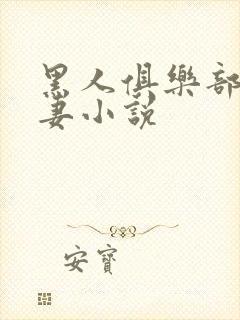 黑人俱樂部
妻小說
安寶